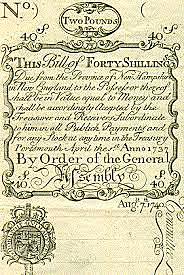 No:
TWO POUNDS
40s 40s
THIS Bill of FORTY SHILLINGS
Due from the Province of New Hampshire
in New England, to the Possessor thereof
shall be in Value equal to Money and
shall be accordingly Accepted by the
Treasurer and Receivers Subordinate
to him in all Publick Payments and
for any Stock at any time in the Treasury
Portsmouth April the 1st Anno 1737
By Order of the General
40s Assembly 40s
Augt 7 1740